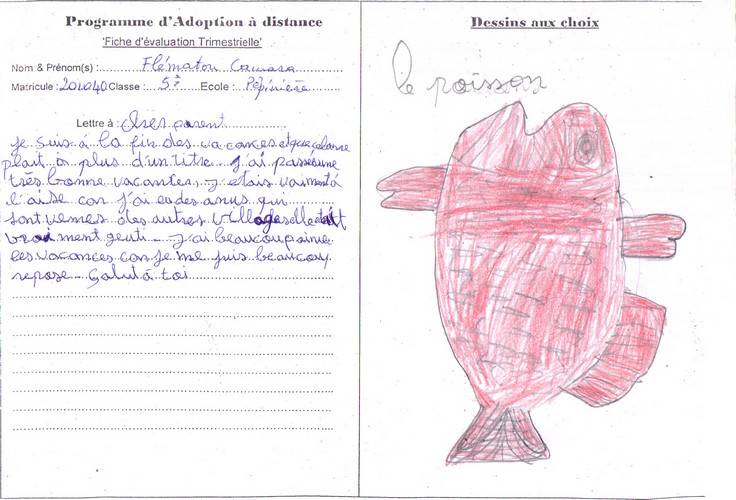 Programme d'Adoption à distance
'Fiche d'évaluation Trimestrielle'
Nom & Prénom(s) : Flématou Camara
Matricule : 201040 Classe : 5è Ecole : Pépinière
Lettre à : chers parent
je suis à la fin des vacances et que ça
plait a plus d'un titre J'ai passé une
très bonne vacances, J etais vaiment à
l'aise car j'ai eu des amis qui
sont venues des autres villages elle était
vrai ment gent J'ai beaucoup aimé
les vacances car je me suis beaucoup
reposé Salut à toi
Dessins aux choix
le poisson